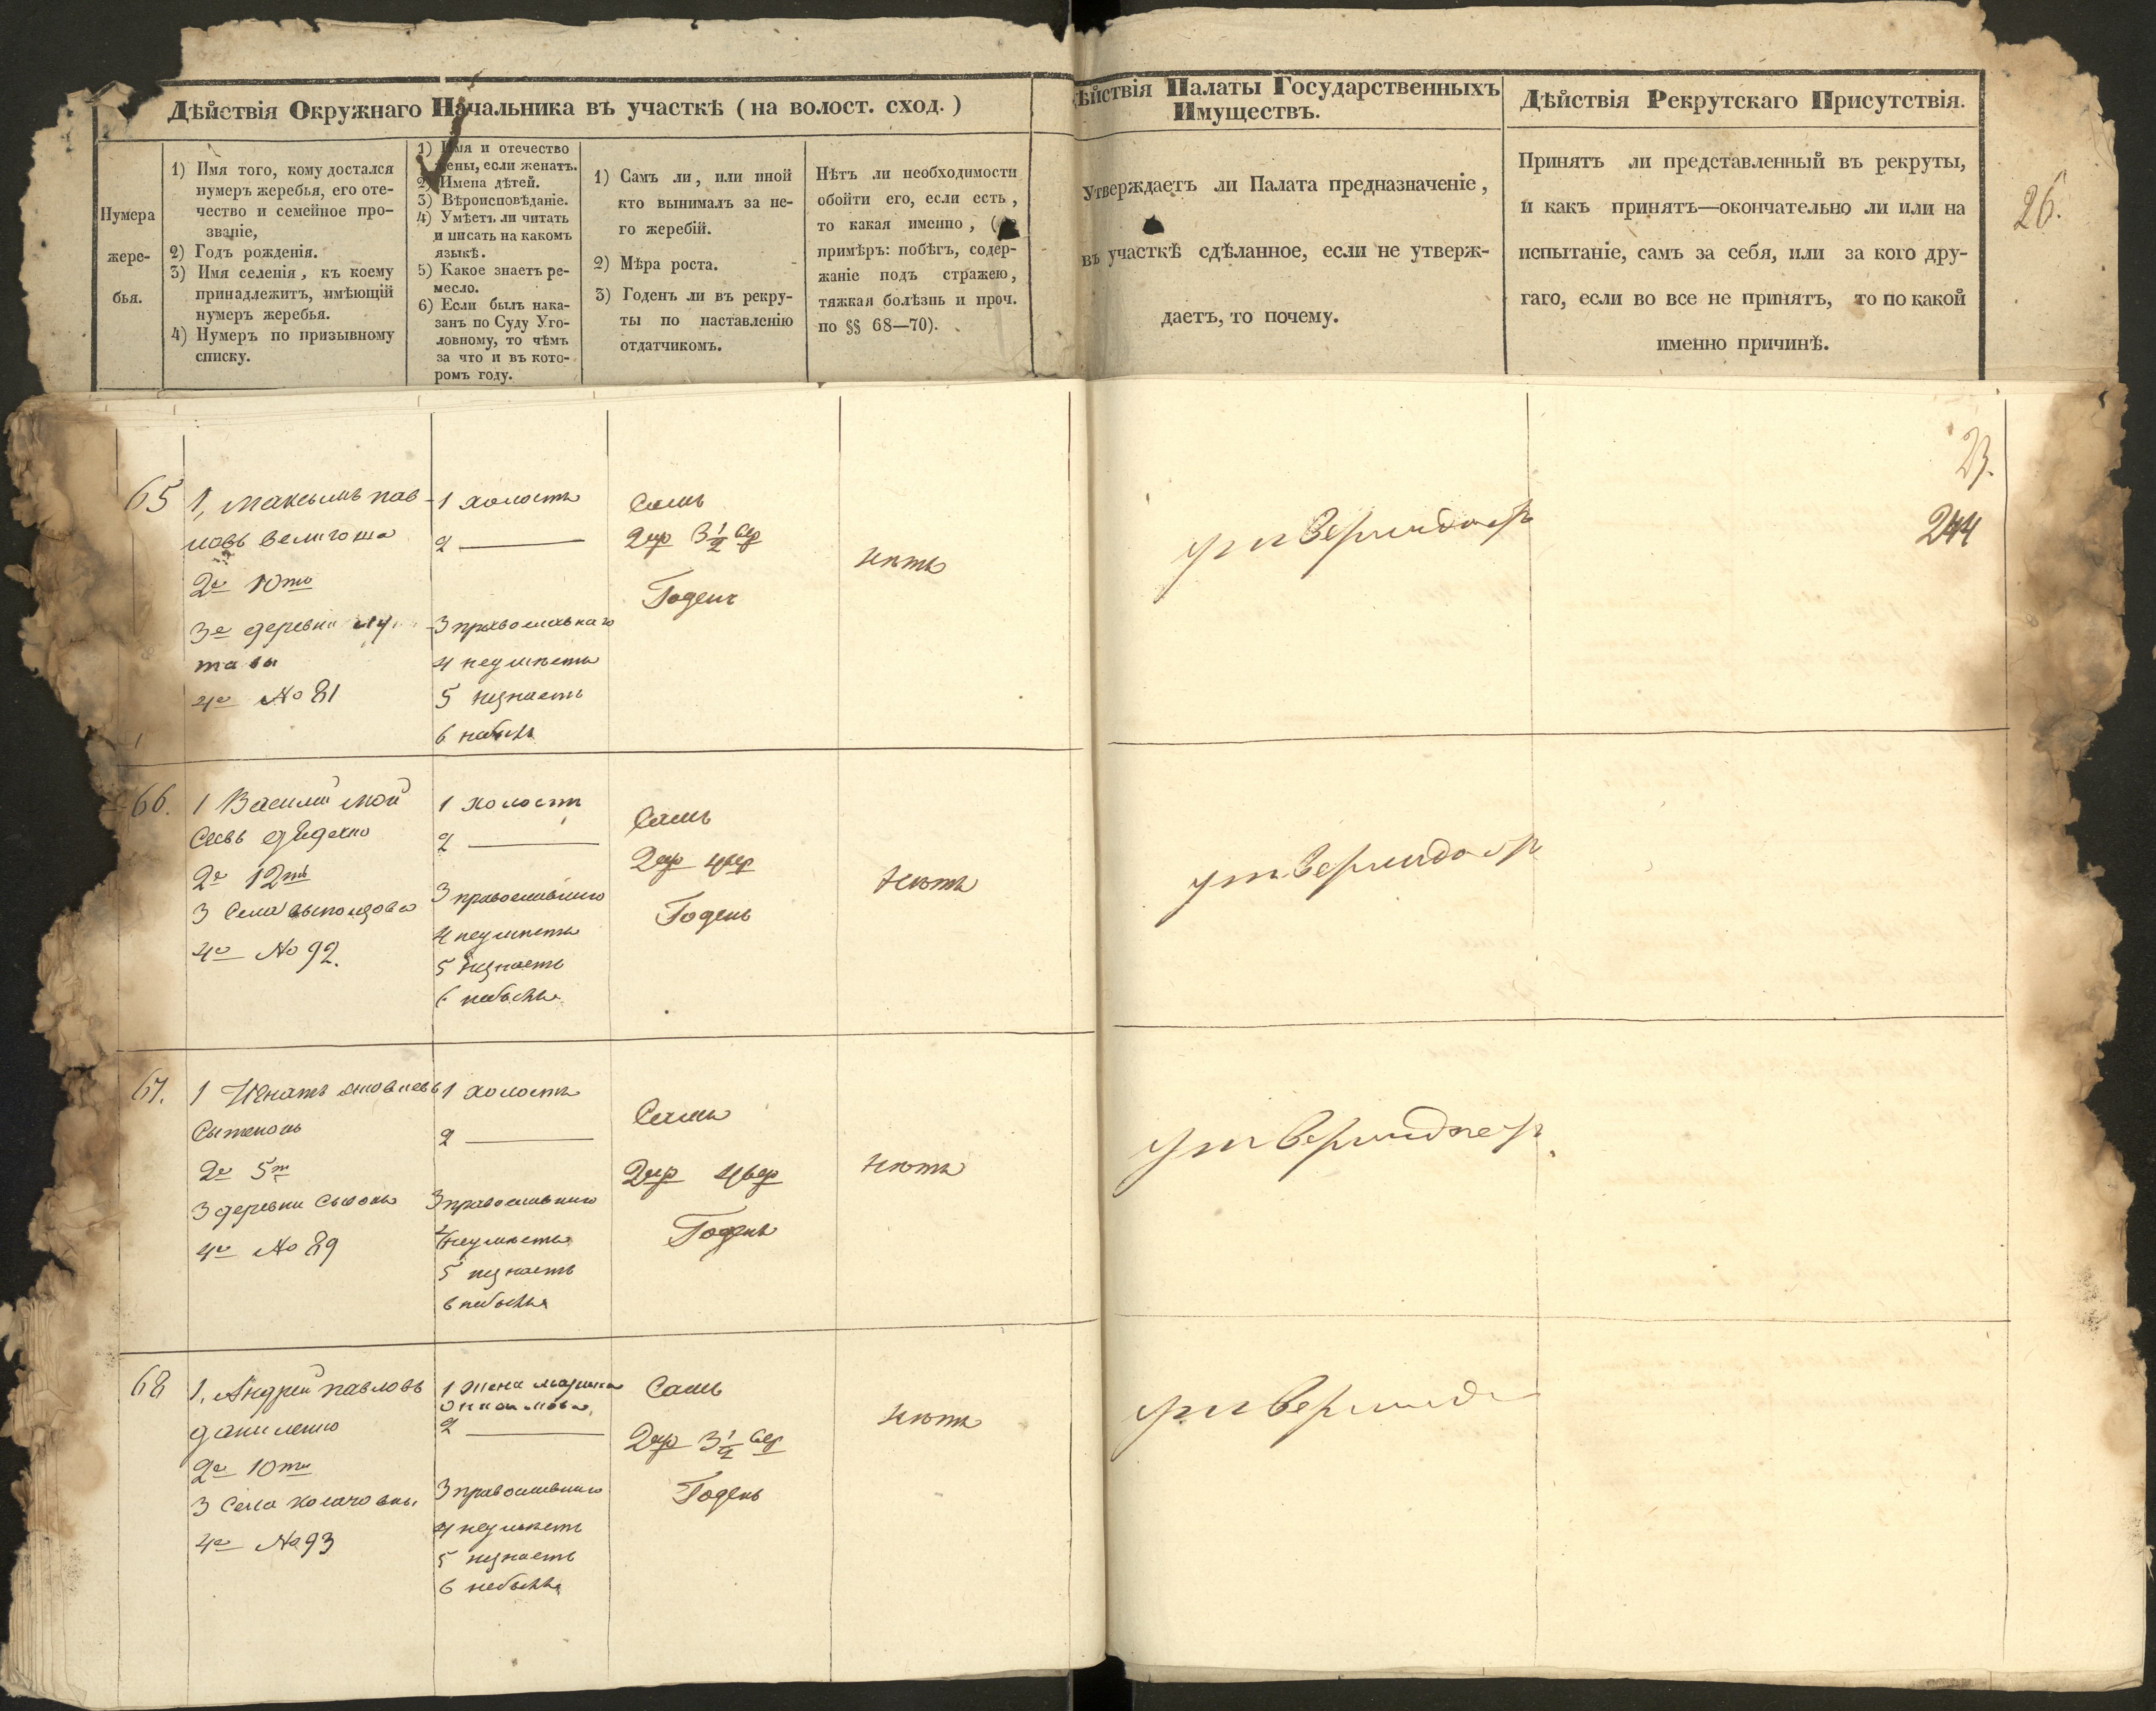 Дѣйствія Окружнаго Начальника въ участкѣ (на волост. сход.)
Нумера
жере-
бья.
1) Имя того, кому достался
нумеръ жеребья, его оте-
чество и семейное про-
званіе,
2) Годъ рожденія.
3) Имя селенія, къ коему
принадлежитъ, имѣющій
нумеръ жеребья.
4) Нумеръ по призывному
списку.
1) Имя и отечество
жены, если женатъ.
2) Имена дѣтей.
3) Вѣроисповѣданіе.
4) Умѣетъ ли читать
и писать на какомъ
языкѣ.
5) Какое знаетъ ре-
месло.
6) Если былъ нака-
занъ по Суду Уго-
ловному, то чѣмъ
за что и въ кото-
ромъ году.
1) Самъ ли, или иной
кто вынималъ за не-
го жеребій.
2) Мѣра роста.
3) Годенъ ли въ рекру-
ты по наставленію
отдатчикомъ.
Нѣтъ ли необходимости
обойти его, если есть,
то какая именно, (
примѣръ: побѣгъ, содер-
жаніе подъ стражею,
тяжкая болѣзнь и проч.
по §§ 68—70).
Дѣйствія Палаты Государственныхъ
Имуществъ.
Утверждаетъ ли Палата предназначеніе,
въ участкѣ сдѣланное, если не утверж-
даетъ, то почему.
Дѣйствія Рекрутскаго Присутствія.
Принятъ ли представленный въ рекруты,
и какъ принятъ—окончательно ли или на
испытаніе, самъ за себя, или за кого дру-
гаго, если во все не принятъ, то по какой
именно причинѣ.
26.
244
65
1, Максымъ пав
ловъ Велигоша
2е 10то
3е деревни
4е № 81
1 холостъ
2
3 православнаго
4 неумѣетъ
5 незнаетъ
6 небылъ
Самъ
2 ар 3 1/2 вер
Годенъ
нѣтъ
утвержда
66.
1 Василий Мой
сеевъ
2е 12тъ
3 Села
4е № 92.
1 холостъ
2
3 православнаго
4 неумѣетъ
5 незнаетъ
6 небылъ
Самъ
2 ар 4 вер
Годенъ
нѣтъ
утвержда
67.
1 Игнатъ яковлевъ
2е 5т
3 деревни
4е № 89
1 холостъ
2
3 православнаго
4 неумѣетъ
5 незнаетъ
6 небылъ
Самъ
2 ар 4 вер
Годенъ
нѣтъ
утвержда
68
1, Андрей павловъ
даниленко
2е 10то
3 Села
4е № 93
1 жена марина
2
3 православнаго
4 неумѣетъ
5 незнаетъ
6 небылъ
Самъ
2 ар 3 1/2 вер
Годенъ
нѣтъ
утвержд